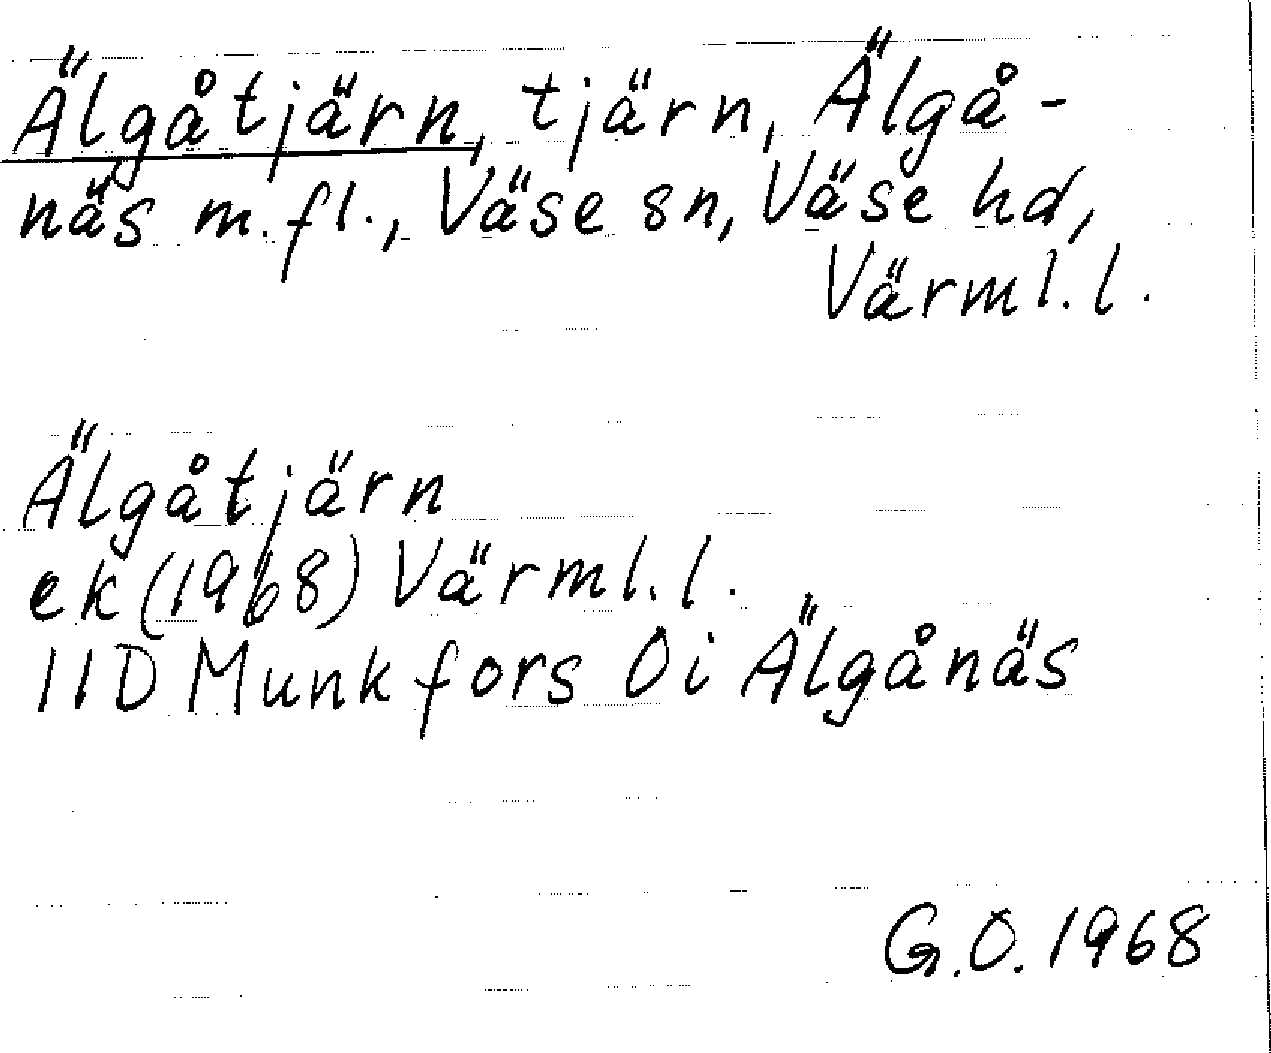 Älgåtjärn, tjärn, Älgå-
näs m.fl., Väse sn, Väse hd,
Värml. l.
Älgåtjärn
ek (1968) Värml. l.
11D Munkfors Öi Älgånäs
G.O. 1968